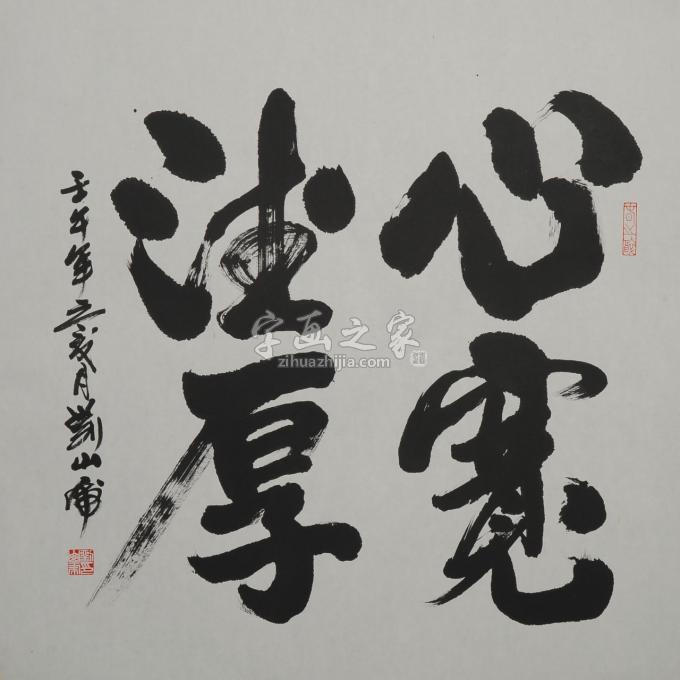 心寬
德厚
壬午年
月劉山
字画之家
zihuazhijia.com